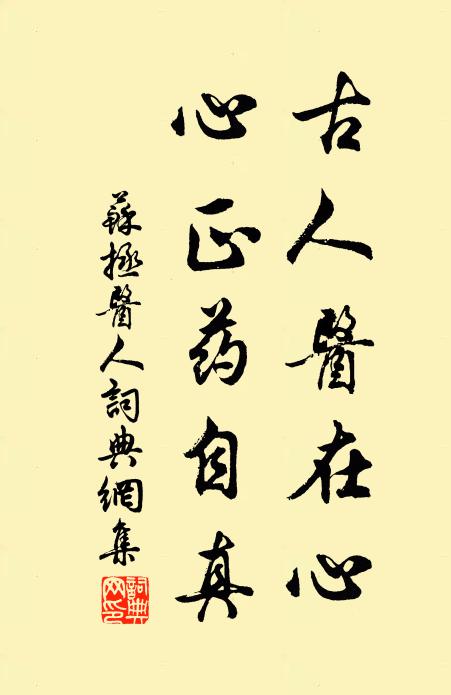 古人醫在心
心正药自真
蘇拯醫人詞典網集
詞典網印